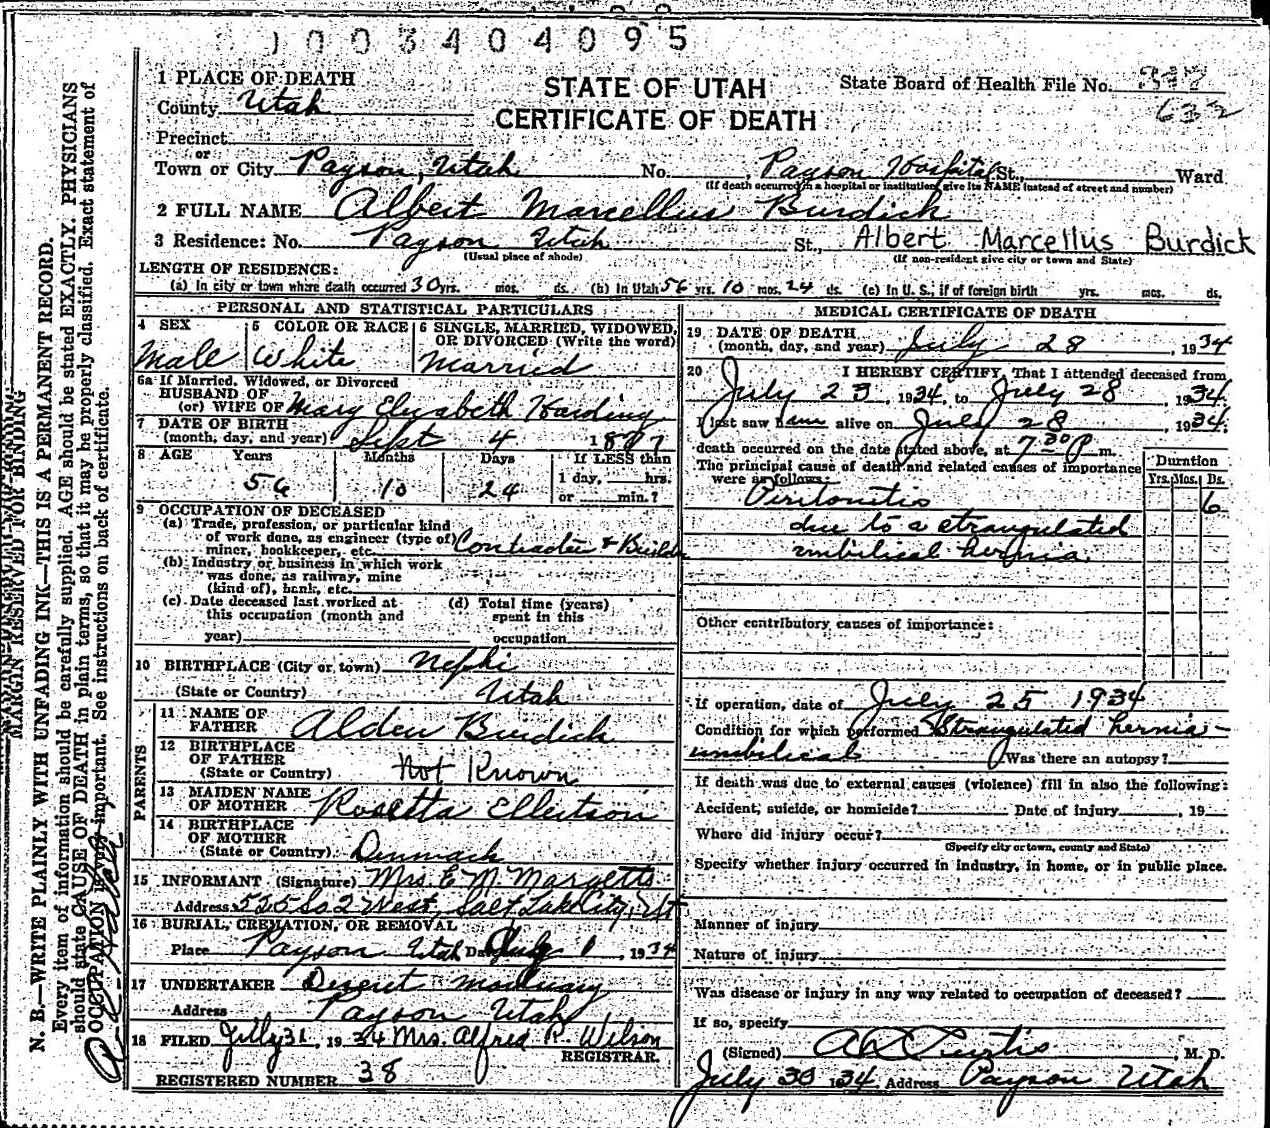 1003404095
1 PLACE OF DEATH
STATE OF UTAH
CERTIFICATE OF DEATH
State Board of Health File No.
632
County Utah
Precinct
or
Town or City Payson, Utah No. , Payson Hospital St., Ward
(If death occurred in a hospital or institution, give its NAME instead of street and number)
2 FULL NAME Albert Marcellus Burdick
3 Residence: No. Payson Utah St., Albert Marcellus Burdick
(Usual place of abode) (If non-resident give city or town and State)
LENGTH OF RESIDENCE:
(a) In city or town where death occurred 30 yrs. mos. ds. (b) In Utah 56 yrs. 10 mos. 24 ds. (c) In U. S., if of foreign birth yrs. mos. ds.
PERSONAL AND STATISTICAL PARTICULARS
4 SEX 5 COLOR OR RACE 6 SINGLE, MARRIED, WIDOWED,
OR DIVORCED (Write the word)
Male White Married
6a If Married, Widowed, or Divorced
HUSBAND OF
(or) WIFE OF Mary Elizabeth Harding
7 DATE OF BIRTH
(month, day, and year) Sept 4 1877
8 AGE Years Months Days If LESS than
56 10 24 1 day, hrs.
or min.?
9 OCCUPATION OF DECEASED
(a) Trade, profession, or particular kind
of work done, as engineer (type of)
miner, bookkeeper, etc. Contractor & Builder
(b) Industry or business in which work
was done, as railway, mine
(kind of), bank, etc.
(c) Date deceased last worked at (d) Total time (years)
this occupation (month and spent in this
year) occupation
10 BIRTHPLACE (City or town) Nephi
(State or Country) Utah
PARENTS
11 NAME OF
FATHER Alden Burdick
12 BIRTHPLACE
OF FATHER
(State or Country) Not Known
13 MAIDEN NAME
OF MOTHER Rosetta Ellertson
14 BIRTHPLACE
OF MOTHER
(State or Country) Denmark
15 INFORMANT (Signature) Mrs. E. M. Margetts
Address 525 So 2 West, Salt Lake City, Ut
16 BURIAL, CREMATION, OR REMOVAL
Place Payson Utah Date 1, 1934
17 UNDERTAKER Deseret Mortuary
Address Payson Utah
18 FILED July 31, 1934 Mrs. Alfred R. Wilson
REGISTRAR.
REGISTERED NUMBER 38
MEDICAL CERTIFICATE OF DEATH
19 DATE OF DEATH
(month, day, and year) July 28, 1934
20 I HEREBY CERTIFY, That I attended deceased from
July 23, 1934, to July 28, 1934.
I last saw him alive on July 28, 1934.
death occurred on the date stated above, at 7-30 P m.
The principal cause of death and related causes of importance
were as follows:
Duration
Yrs. Mos. Ds.
Peritonitis 6
due to a strangulated
umbilical hernia
Other contributory causes of importance:
If operation, date of July 25 1934
Condition for which performed Strangulated hernia -
umbilical Was there an autopsy?
If death was due to external causes (violence) fill in also the following:
Accident, suicide, or homicide? Date of injury , 19
Where did injury occur?
(Specify city or town, county and State)
Specify whether injury occurred in industry, in home, or in public place.
Manner of injury
Nature of injury
Was disease or injury in any way related to occupation of deceased?
If so, specify
(Signed) A L Curtis, M. D.
July 30 1934 Address Payson Utah
MARGIN RESERVED FOR BINDING
N. B.—WRITE PLAINLY WITH UNFADING INK—THIS IS A PERMANENT RECORD.
Every item of information should be carefully supplied. AGE should be stated EXACTLY. PHYSICIANS
should state CAUSE OF DEATH in plain terms, so that it may be properly classified. Exact statement of
OCCUPATION is very important. See instructions on back of certificate.